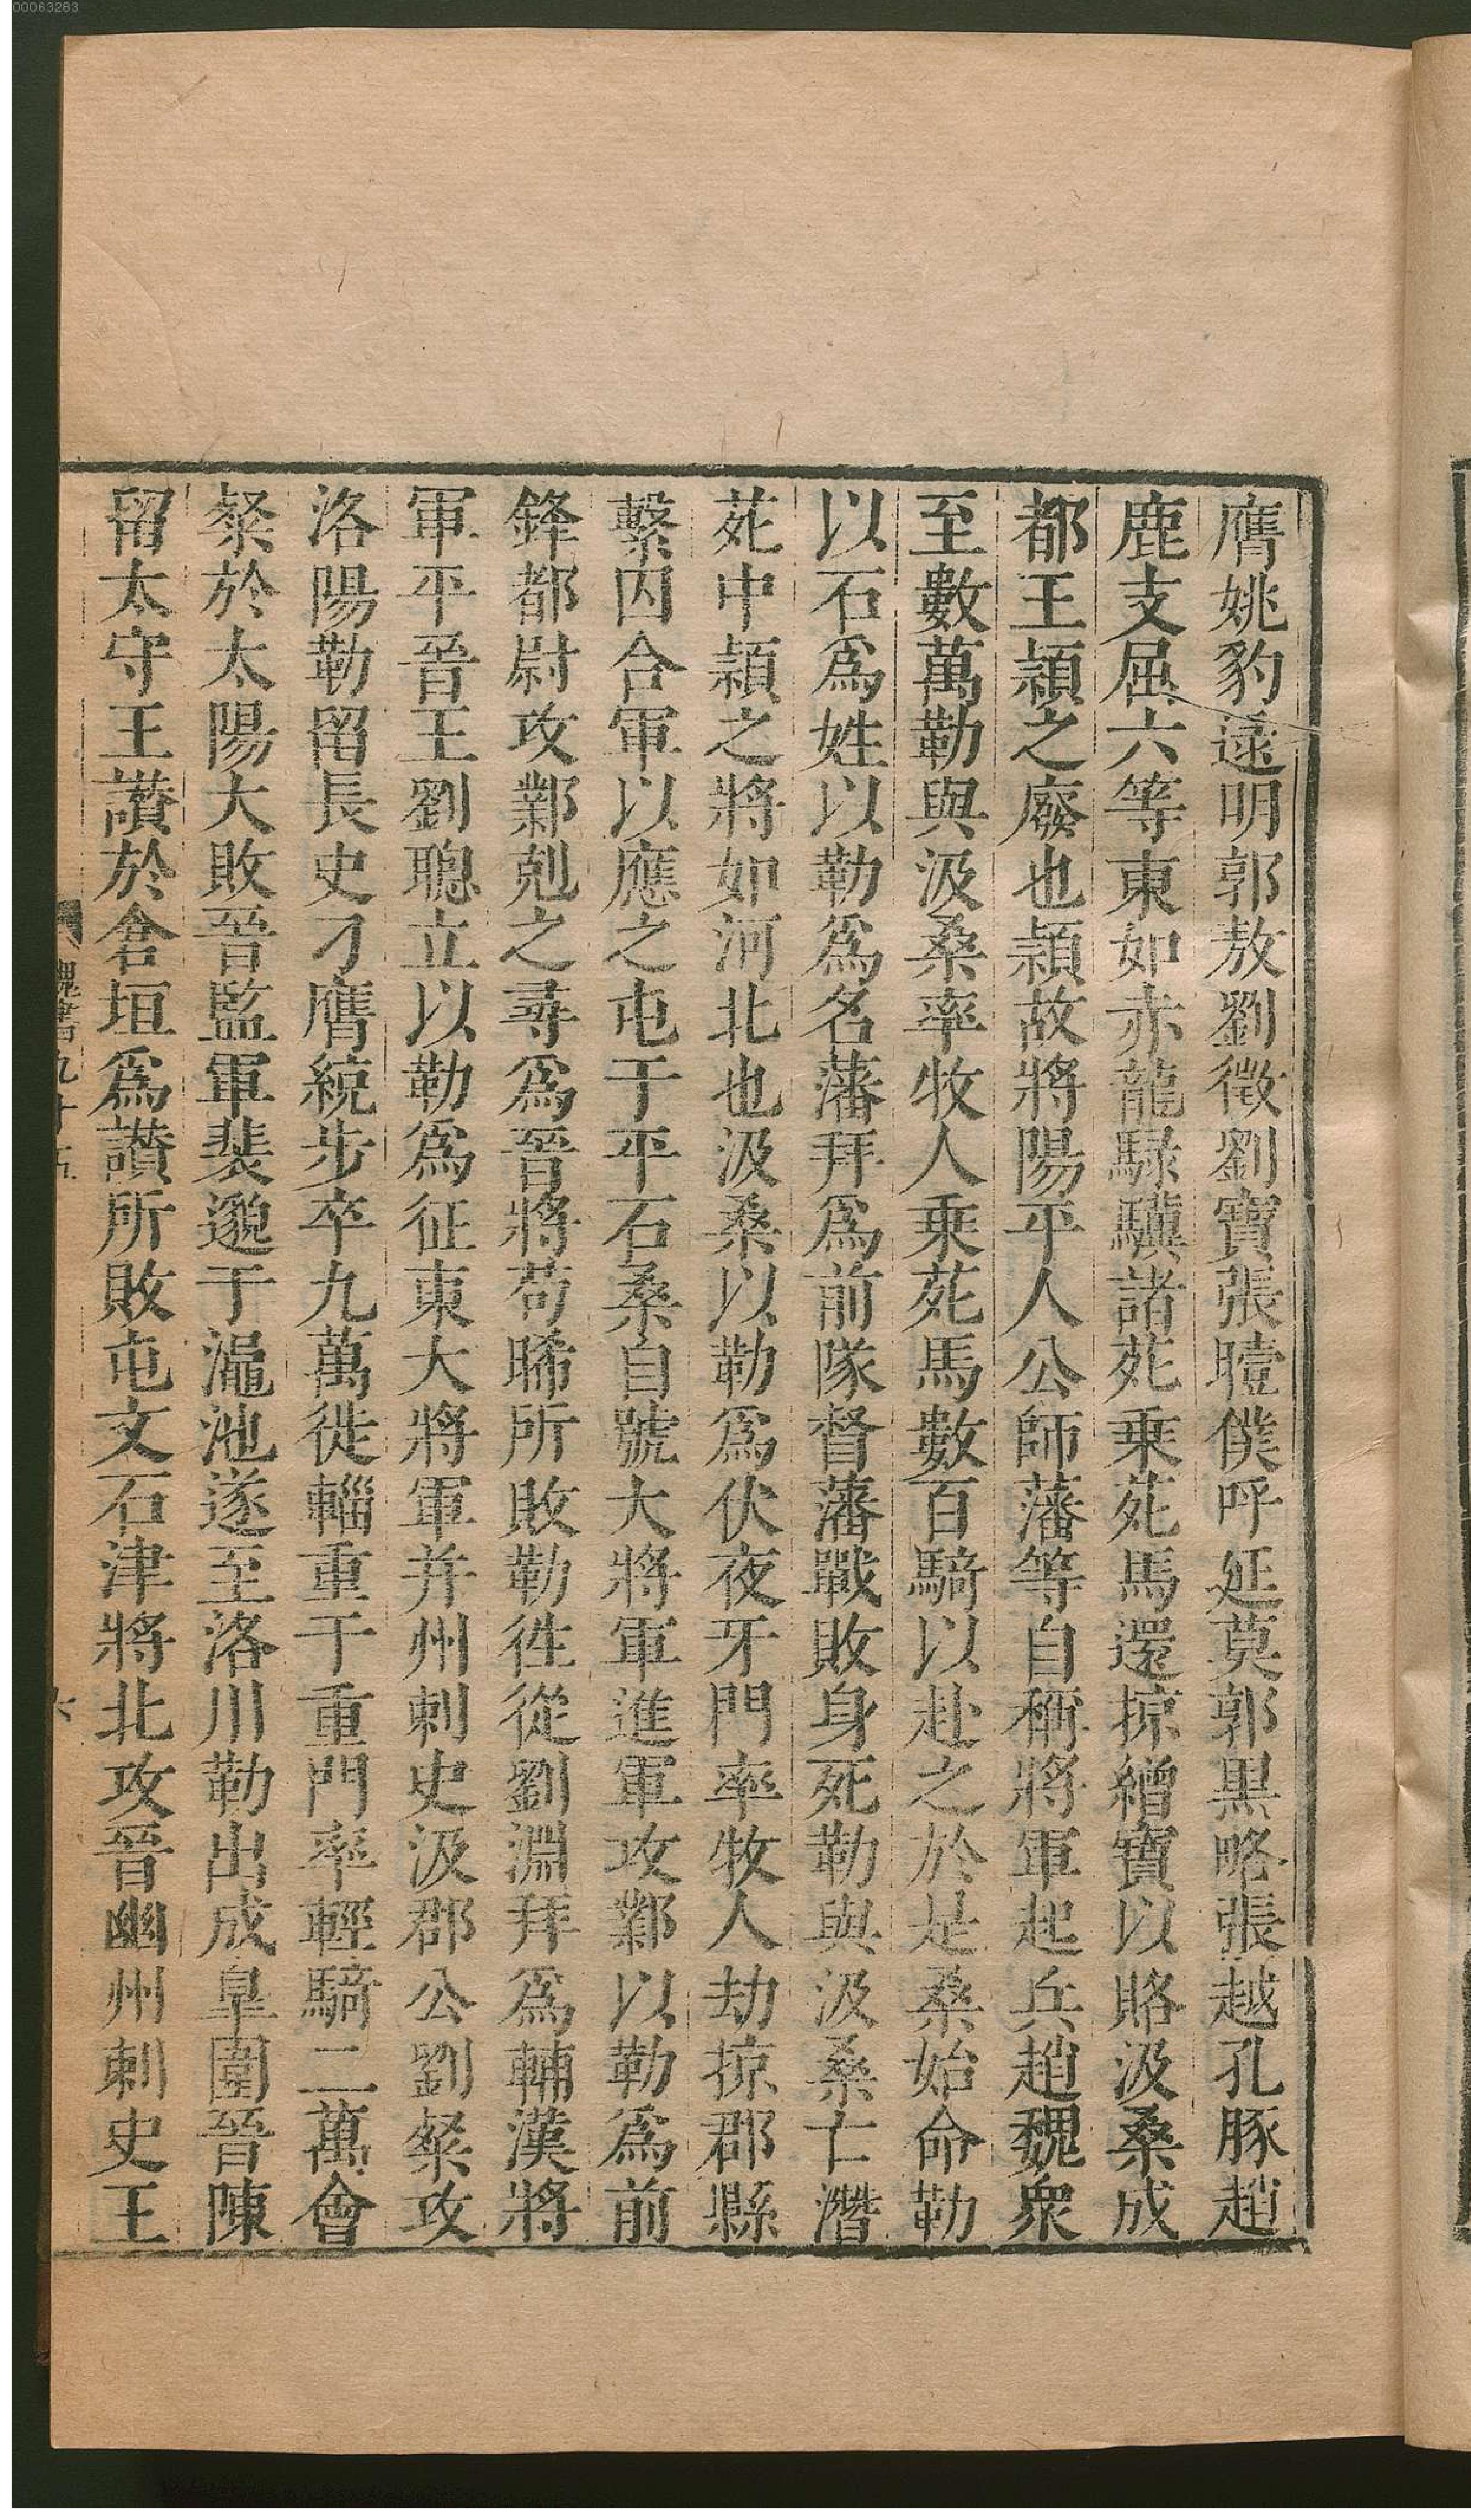 膺姚豹逯明郭敖劉徵劉寶張曀僕呼延莫郭黑略張越孔豚趙
鹿支屈六等東如赤龍騄驥諸苑乗苑馬還掠繒寶以賂汲桑成
都王頴之廢也頴故將陽平人公師藩等自稱將軍起兵趙魏衆
至數萬勒與汲桑率牧人乗苑馬數百騎以赴之於是桑始命勒
以石爲姓以勒爲名藩拜爲前隊督藩戰敗身死勒與汲桑亡潛
苑中頴之將如河北也汲桑以勒爲伏夜牙門率牧人劫掠郡縣
繫囚合軍以應之屯于平石桑自號大將軍進軍攻鄴以勒爲前
鋒都尉攻鄴剋之尋爲晉將苟晞所敗勒徃從劉淵拜爲輔漢將
軍平晉王劉聰立以勒爲征東大將軍并州刺史汲郡公劉粲攻
洛陽勒留長史刁膺統步卒九萬徙輜重于重門率輕騎二萬會
粲於太陽大敗晉監軍裴邈于澠池遂至洛川勒出成皐圍晉陳
留太守王讃於倉垣爲讃所敗屯文石津將北攻晉幽州刺史王
魏書九十五
六
00063283